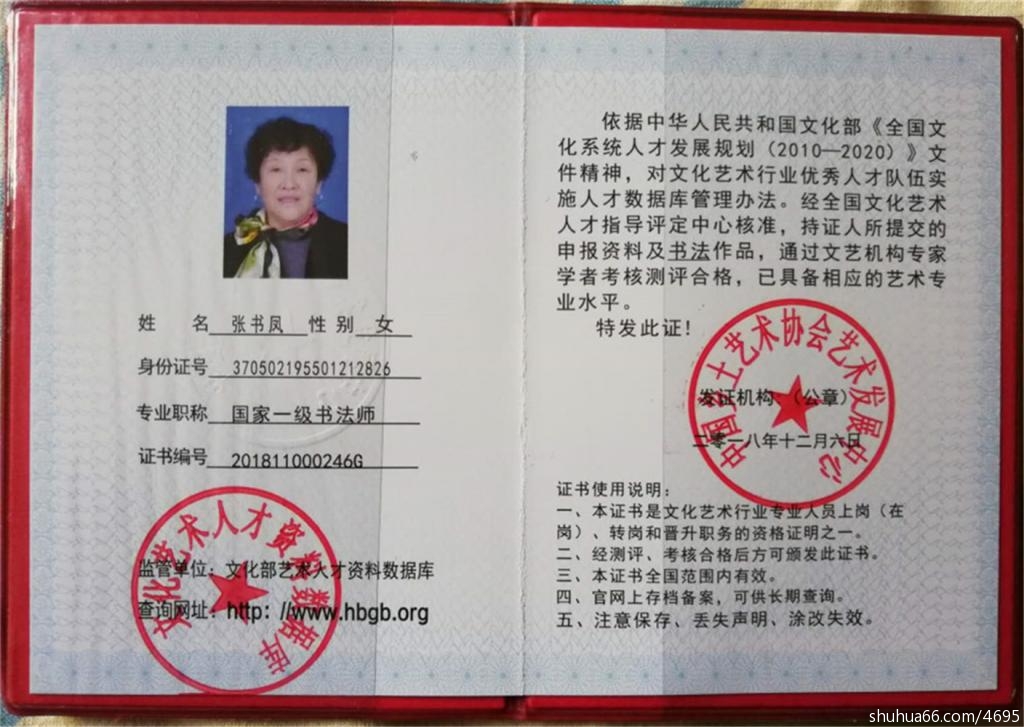 姓 名 张书凤 性别 女
身份证号 370502195501212826
专业职称 国家一级书法师
证书编号 201811000246G
监管单位：文化部艺术人才资料数据库
查询网址：http：//www.hbgb.org
文化艺术人才资料数据库
依据中华人民共和国文化部《全国文
化系统人才发展规划（2010—2020）》文
件精神，对文化艺术行业优秀人才队伍实
施人才数据库管理办法。经全国文化艺术
人才指导评定中心核准，持证人所提交的
申报资料及书法作品，通过文艺机构专家
学者考核测评合格，已具备相应的艺术专
业水平。
特发此证！
发证机构（公章）
二零一八年十二月六日
中国民土艺术协会艺术发展中心
证书使用说明：
一、本证书是文化艺术行业专业人员上岗（在
岗）、转岗和晋升职务的资格证明之一。
二、经测评、考核合格后方可颁发此证书。
三、本证书全国范围内有效。
四、官网上存档备案，可供长期查询。
五、注意保存、丢失声明、涂改失效。
shuhua66.com/4695